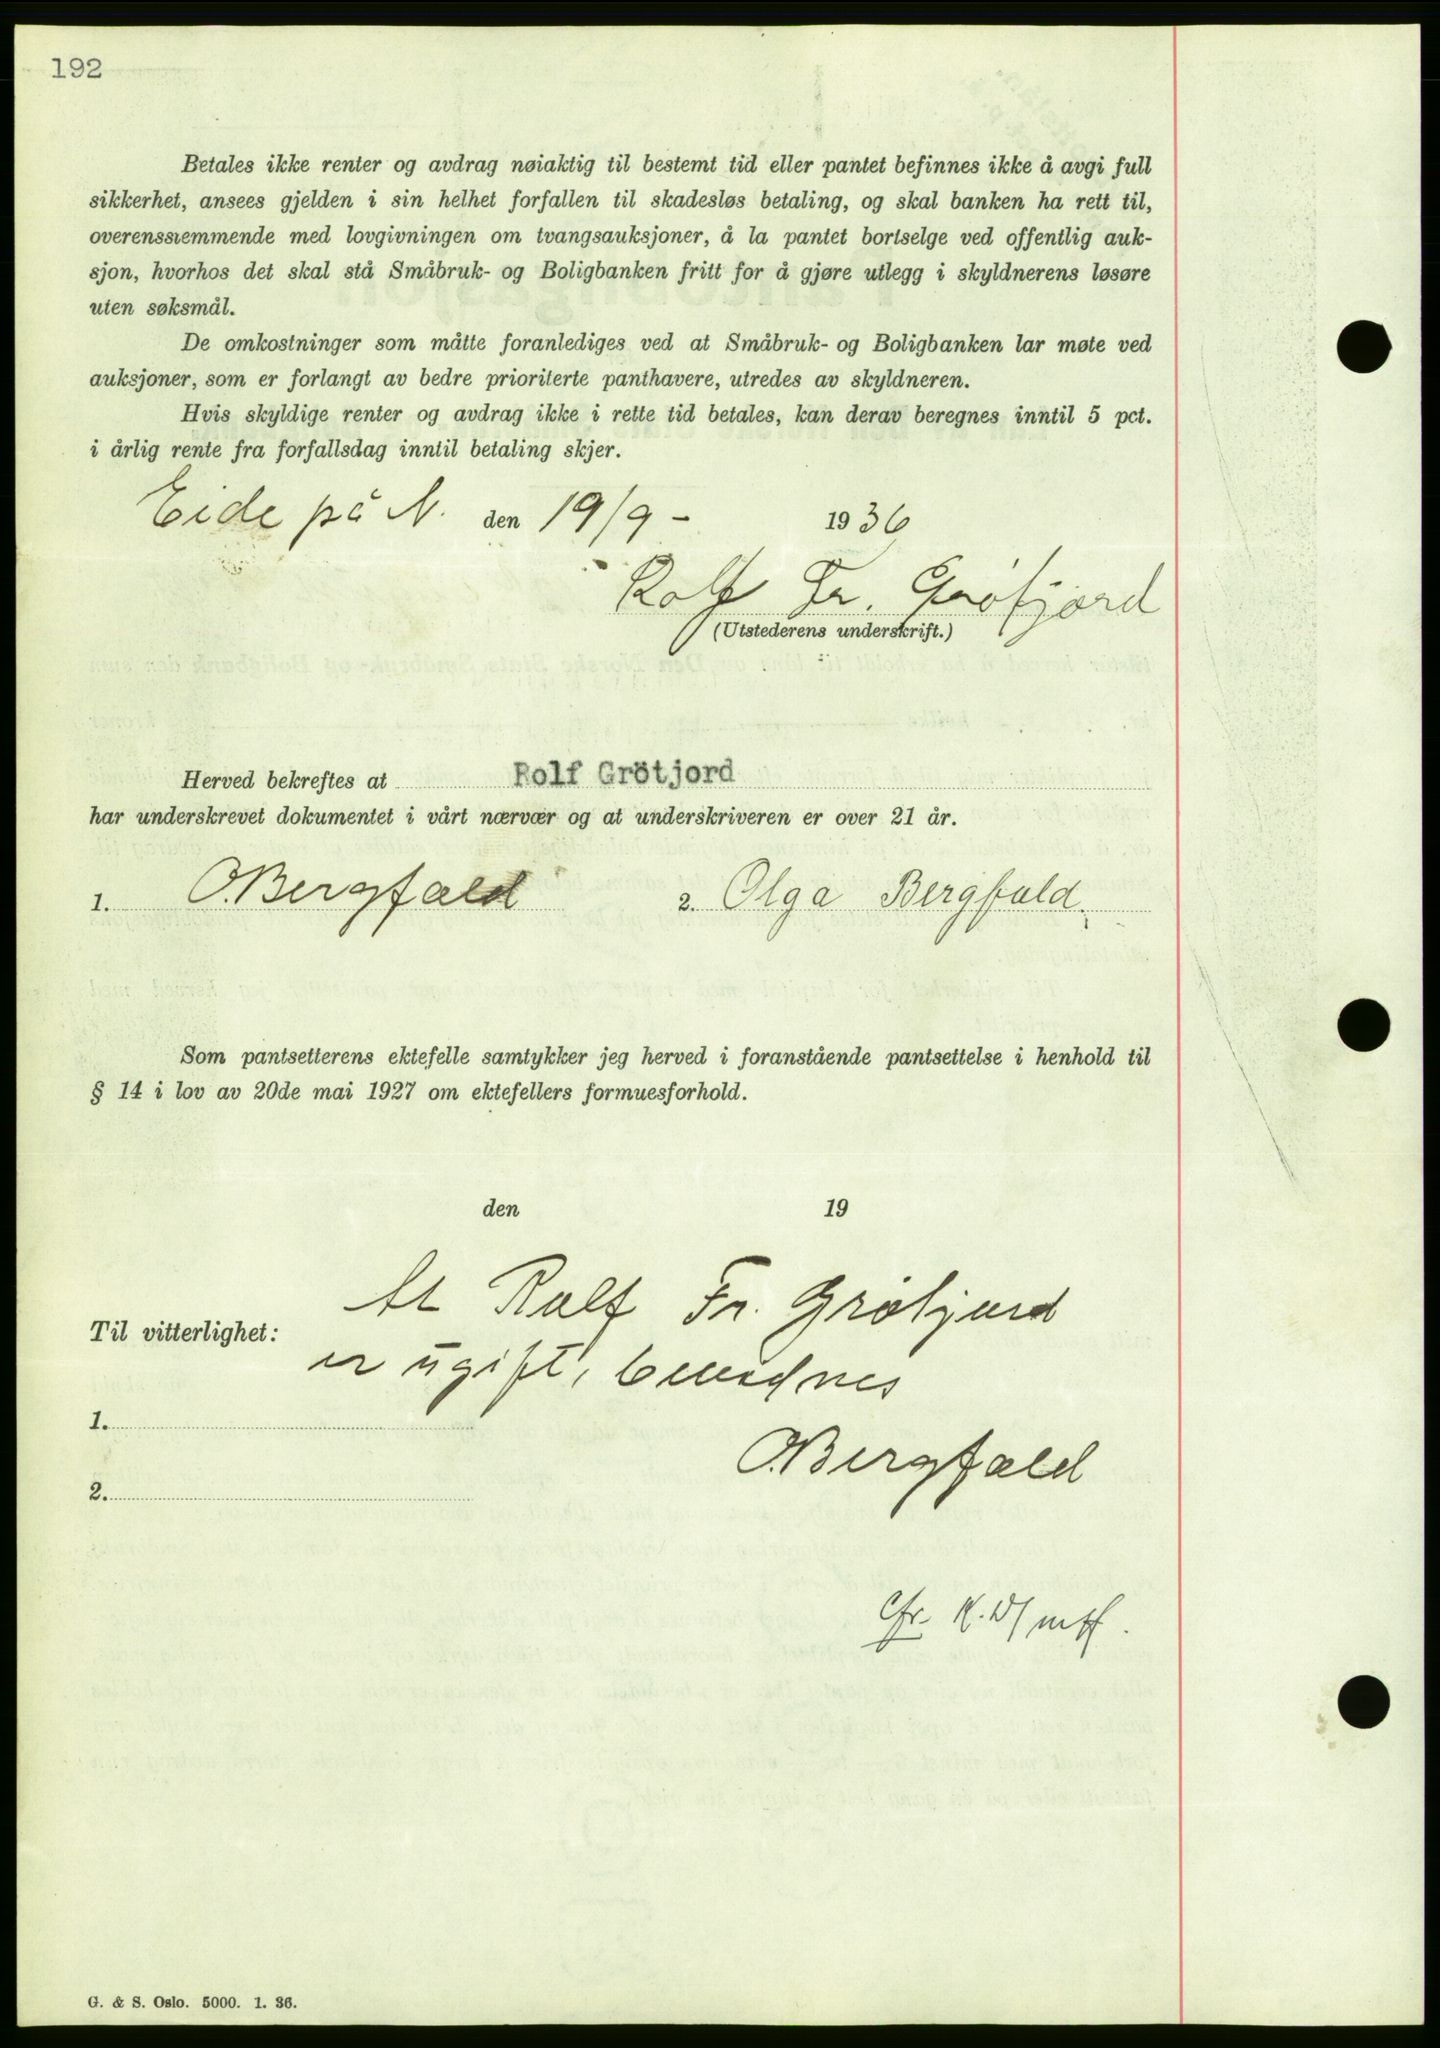 192
Betales ikke renter og avdrag nøiaktig til bestemt tid eller pantet befinnes ikke å avgi full
sikkerhet, ansees gjelden i sin helhet forfallen til skadesløs betaling, og skal banken ha rett til,
overensstemmende med lovgivningen om tvangsauksjoner, å la pantet bortselge ved offentlig auk-
sjon, hvorhos det skal stå Småbruk- og Boligbanken fritt for å gjøre utlegg i skyldnerens løsøre
uten søksmål.
De omkostninger som måtte foranlediges ved at Småbruk- og Boligbanken lar møte ved
auksjoner, som er forlangt av bedre prioriterte panthavere, utredes av skyldneren.
Hvis skyldige renter og avdrag ikke i rette tid betales, kan derav beregnes inntil 5 pct.
i årlig rente fra forfallsdag inntil betaling skjer.
Eide på N. den 19/9 - 1936
Rolf Fr. Grötjord
(Utstederens underskrift.)
Herved bekreftes at Rolf Grötjord
har underskrevet dokumentet i vårt nærvær og at underskriveren er over 21 år.
1. O. Bergfald 2. Olga Bergfald.
Som pantsetterens ektefelle samtykker jeg herved i foranstående pantsettelse i henhold til
§ 14 i lov av 20de mai 1927 om ektefellers formuesforhold.
den 19
At Rolf Fr. Grötjord
Til vitterlighet:
er ugift, bevidnes
1.
O. Bergfald
2.
G. & S. Oslo. 5000. 1. 36.